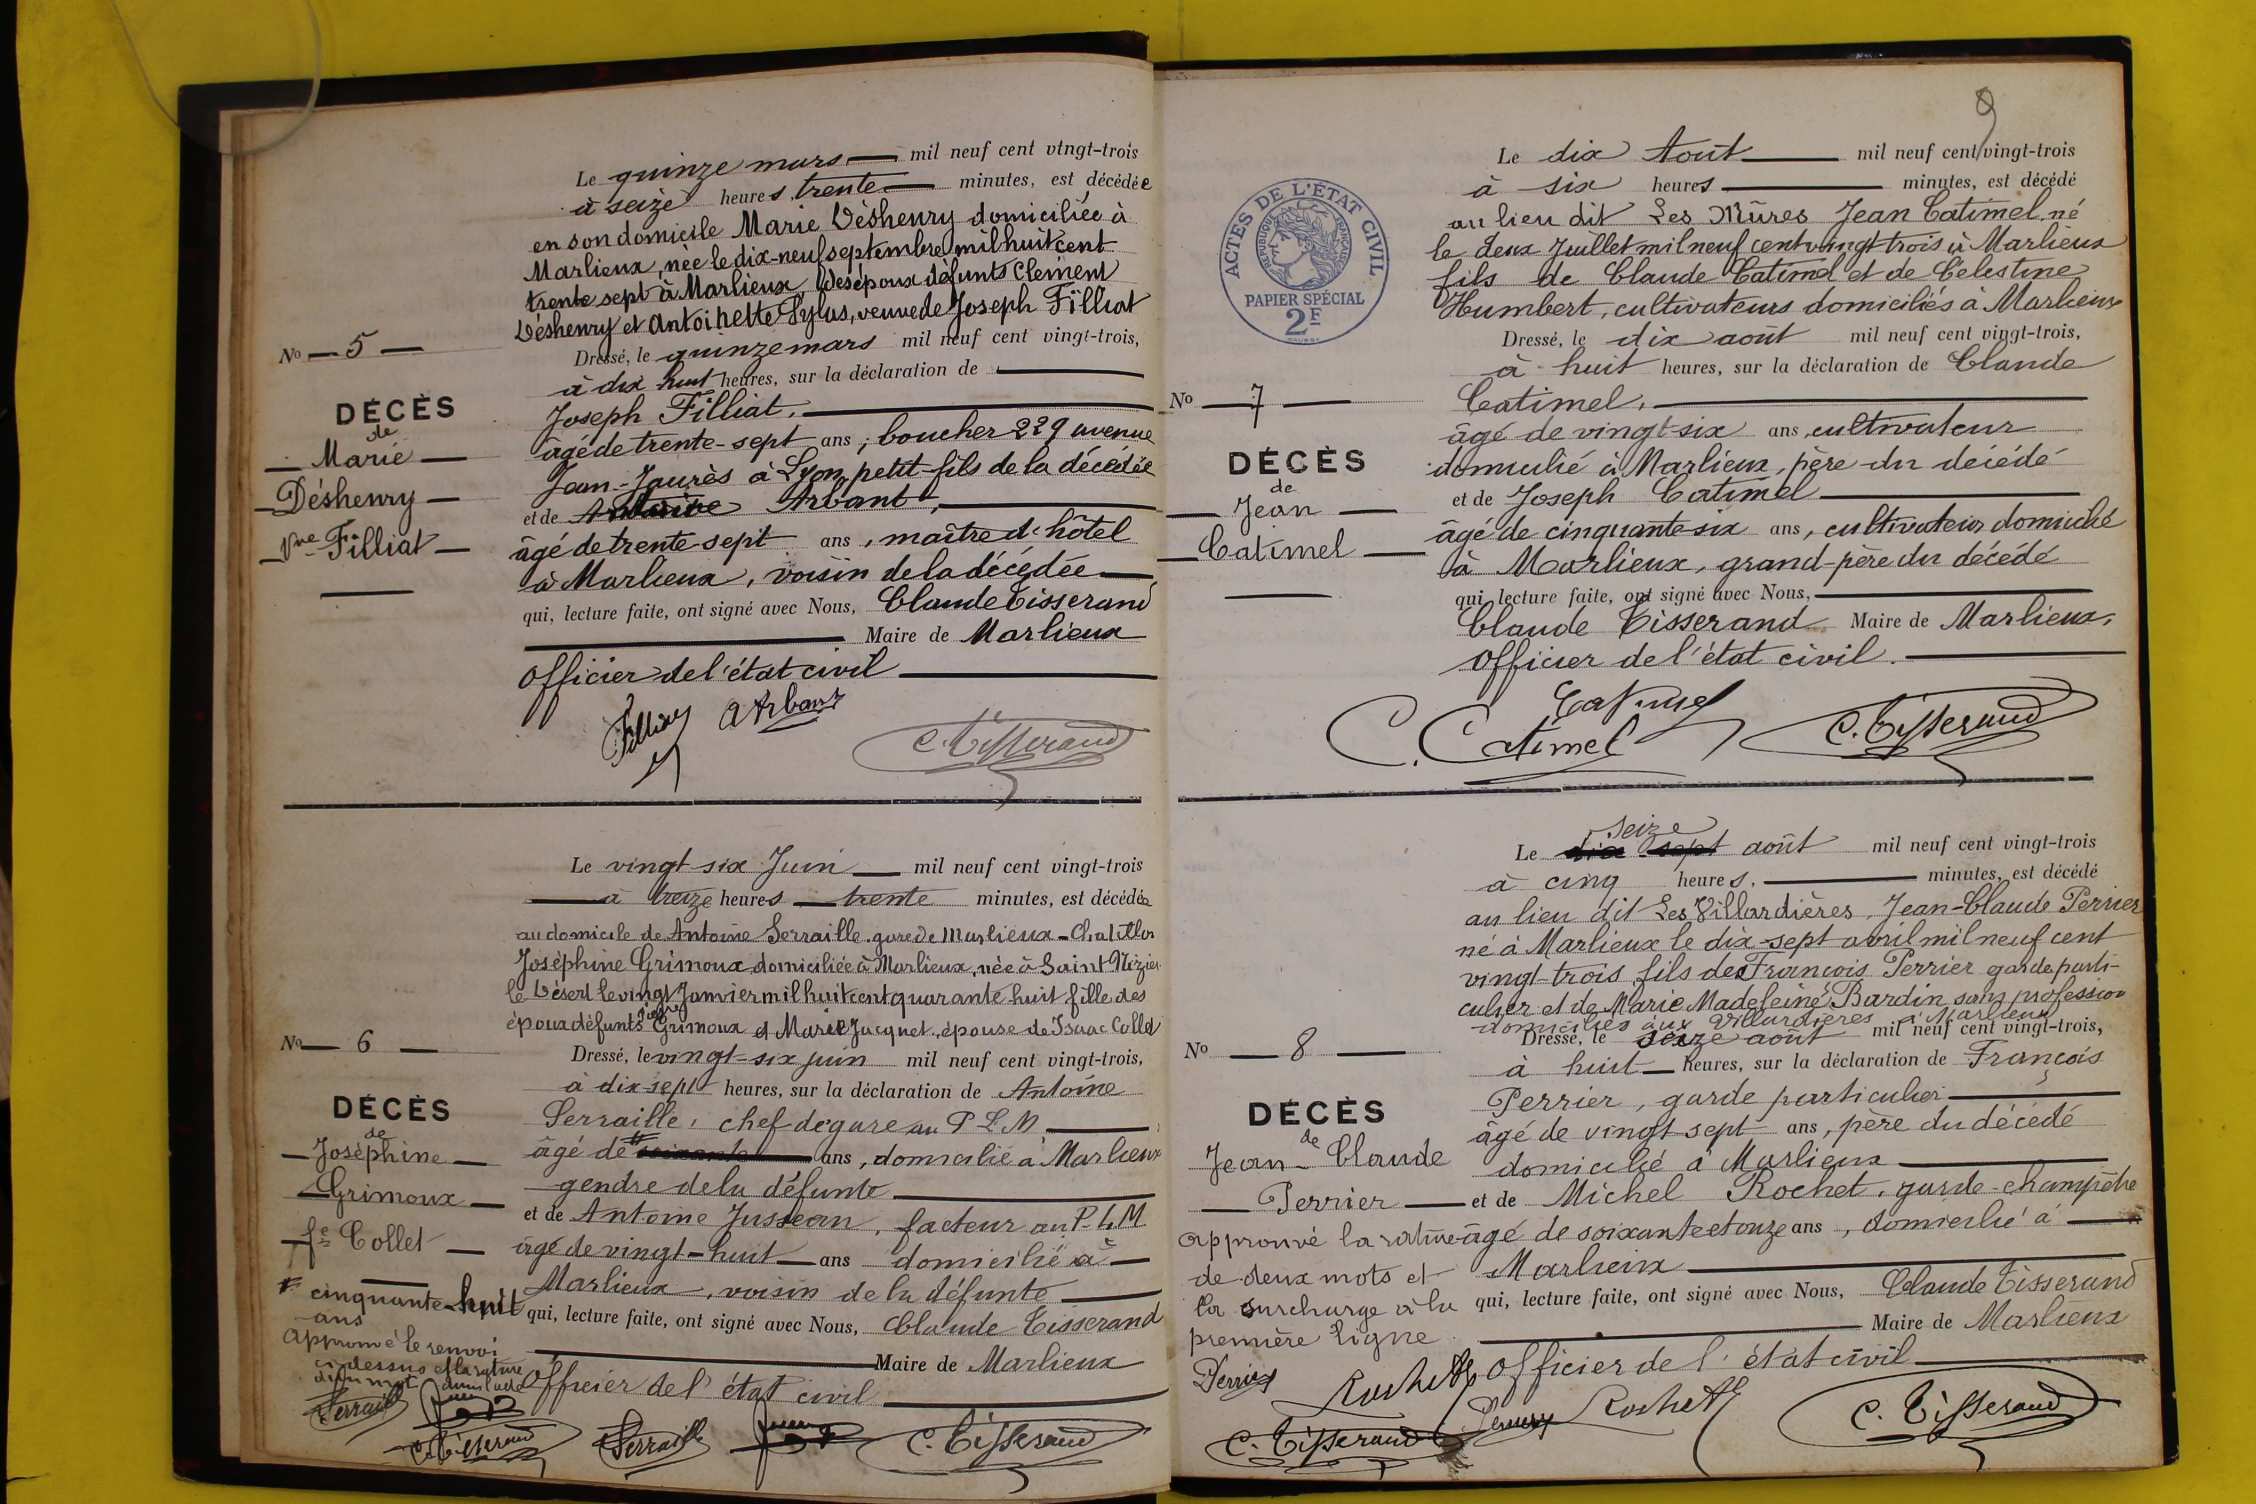 Le quinze mars mil neuf cent vingt-trois
à seize heures trente minutes, est décédée
en son domicile Marie Déshenry domiciliée à
Marlieux, née le dix-neuf septembre mil huit cent
trente sept à Marlieux, des époux défunts Clément
Déshenry et Antoinette Sylas, veuve de Joseph Filliat
No 5
Dressé, le quinze mars mil neuf cent vingt-trois,
à dix huit heures, sur la déclaration de
DÉCÈS
de
Marie
Déshenry
Vve Filliat
Joseph Filliat,
âgé de trente-sept ans, boucher 229 avenue
Jean-Jaurès à Lyon, petit-fils de la décédée
et de Arbant,
âgé de trente-sept ans, maître d'hôtel
à Marlieux, voisin de la décédée
qui, lecture faite, ont signé avec Nous, Claude Tisserand
Maire de Marlieux
officier de l'état civil
Filliat A Arbant
C. Tisserand
Le vingt-six Juin mil neuf cent vingt-trois
à treize heures trente minutes, est décédée
au domicile de Antoine Serraille, gare de Marlieux-Chatillon
Joséphine Grimoux domiciliée à Marlieux, née à Saint Nizier
le Désert le vingt Janvier mil huit cent quarante-huit fille des
époux défunts Pierre Grimoux et Marie Jacquet, épouse de Isaac Collet
No 6
Dressé, le vingt-six juin mil neuf cent vingt-trois,
à dix-sept heures, sur la déclaration de Antoine
DÉCÈS
de
Joséphine
Grimoux
fe Collet
Serraille, chef de gare au P L M
âgé de ans, domicilié à Marlieux
gendre de la défunte
et de Antoine Jusseau, facteur au P-L-M
âgé de vingt-huit ans domicilié à
Marlieux, voisin de la défunte
qui, lecture faite, ont signé avec Nous, Claude Tisserand
Maire de Marlieux
Officier de l'état civil
cinquante-huit
ans
Approuvé le renvoi
ci dessus et la rature
d'un mot
Serraille
C. Tisserand
Serraille
C. Tisserand
9
ACTES DE L'ÉTAT CIVIL
RÉPUBLIQUE FRANÇAISE
PAPIER SPÉCIAL
2F
Le dix Août mil neuf cent vingt-trois
à six heures minutes, est décédé
au lieu dit Les Mûres Jean Catimel, né
le deux Juillet mil neuf cent vingt trois à Marlieux
fils de Claude Catimel et de Célestine
Humbert, cultivateurs domiciliés à Marlieux
Dressé, le dix août mil neuf cent vingt-trois,
à huit heures, sur la déclaration de Claude
No 7
DÉCÈS
de
Jean
Catimel
Catimel,
âgé de vingt-six ans, cultivateur
domicilié à Marlieux, père du décédé
et de Joseph Catimel
âgé de cinquante-six ans, cultivateur domicilié
à Marlieux, grand-père du décédé
qui, lecture faite, ont signé avec Nous,
Claude Tisserand Maire de Marlieux,
officier de l'état civil.
Catimel
C. Catimel
C. Tisserand
seize
Le dix sept août mil neuf cent vingt-trois
à cinq heures, minutes, est décédé
au lieu dit Les Villardières, Jean-Claude Perrier
né à Marlieux le dix-sept avril mil neuf cent
vingt-trois, fils de François Perrier garde parti-
culier et de Marie Madeleine Bardin sans profession
domiciliés aux Villardières à Marlieux
No 8
Dressé, le seize août mil neuf cent vingt-trois,
à huit heures, sur la déclaration de François
DÉCÈS
de
Jean-Claude
Perrier
Perrier, garde particulier
âgé de vingt-sept ans, père du décédé
domicilié à Marlieux
et de Michel Rochet, garde-champêtre
âgé de soixante et onze ans, domicilié à
Marlieux
qui, lecture faite, ont signé avec Nous, Claude Tisserand
Maire de Marlieux
officier de l'état civil
approuvé la rature
de deux mots et
la surcharge à la
première ligne
Perrier
Rochet
C. Tisserand
Perrier Rochet
C. Tisserand